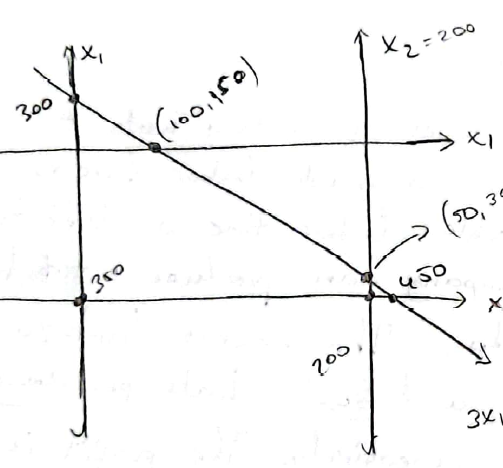 x₁
x₂ = 200
300
(100,150)
x₁
(50,3
350
450
x
200
3x₁